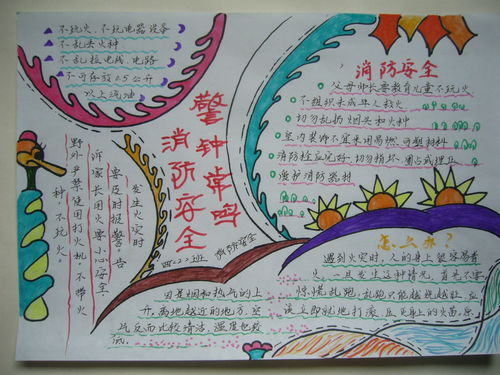 不玩火、不玩电器设备
不乱丢火种
不乱拉电线、电路
不可存放0.5公升
以上汽油
警钟常鸣
消防安全
消防安全
父母师长要教育儿童不玩火
不组织未成年人救火
切勿乱扔烟头和火种
室内装饰不宜采用易燃、可塑材料
消防栓应完好、切勿损坏、圈占或埋压
爱护消防器材
发生火灾时
要及时报警,告
诉家长用火要小心安全
野外严禁使用打火机、不带火
种,不玩火。
四.二班 消防安全
因是烟和热气的上
升,离地越近的地方,空
气反而比较清洁,温度也较
低。
怎么办?
遇到火灾时,人的身上很容易着
火,一旦发生这种情况,首先不要
惊慌乱跑,乱跑只能越烧越旺,应
该立即就地打滚,压灭身上的火苗。原